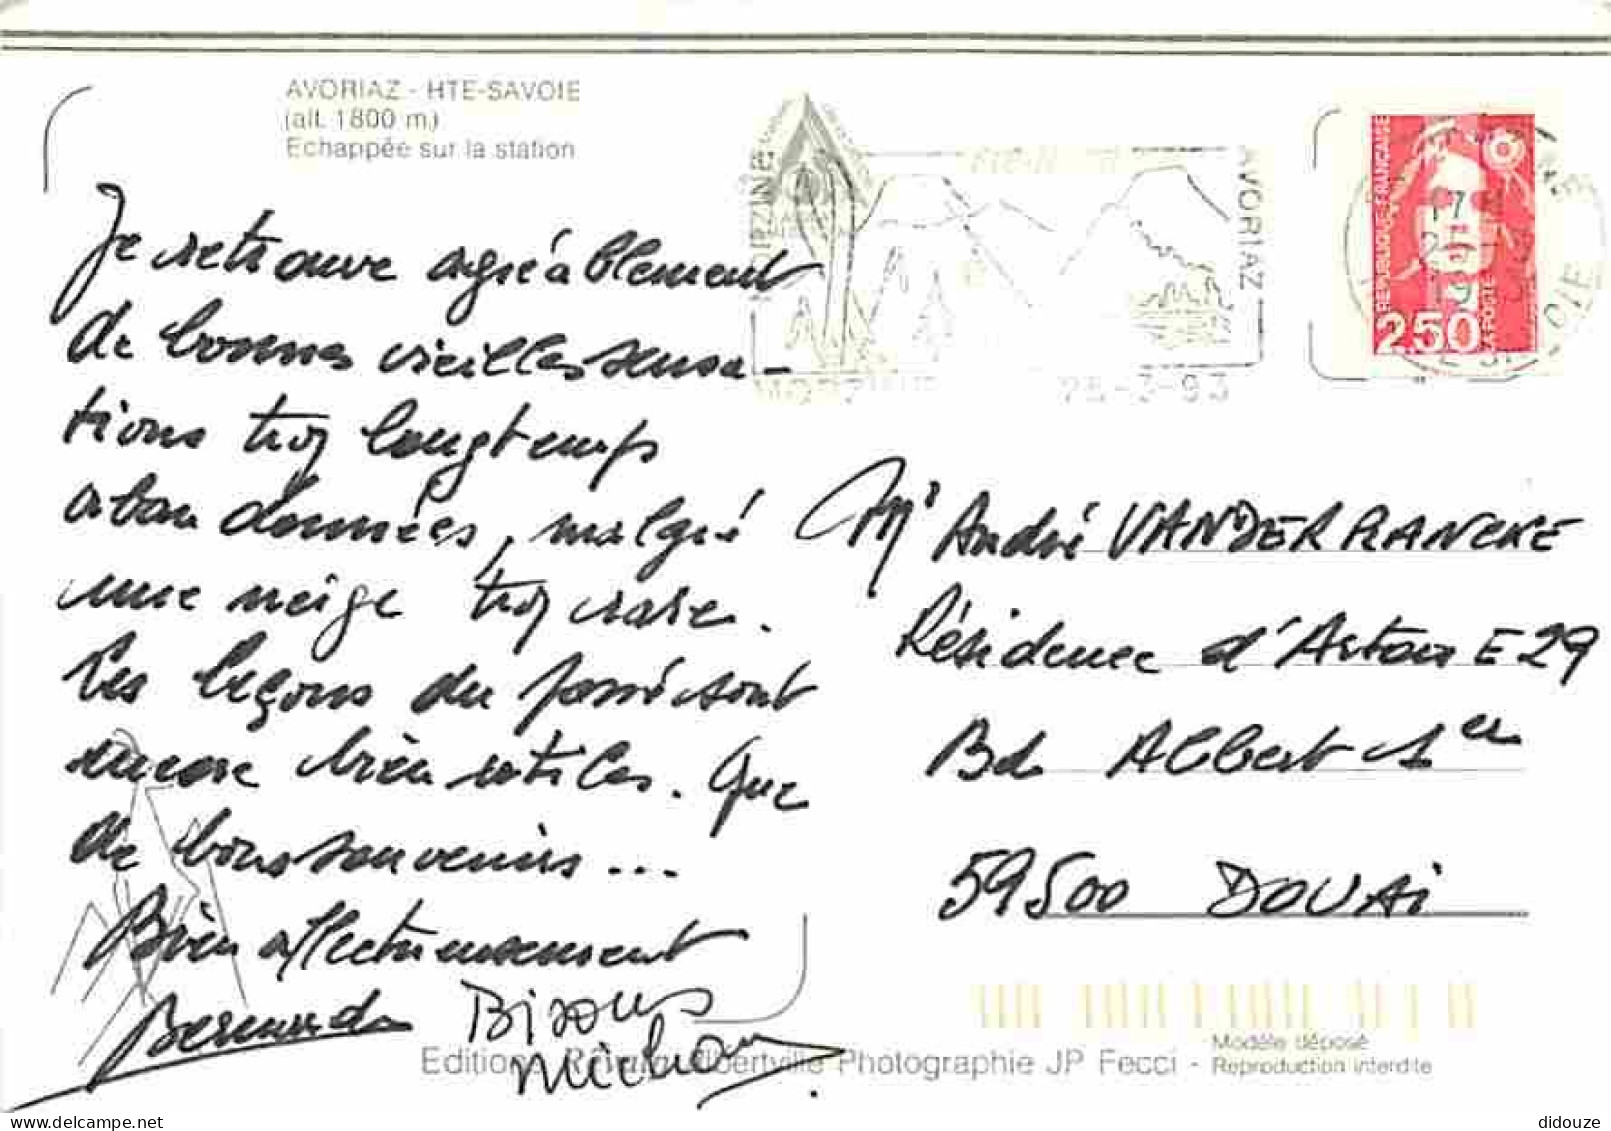 AVORIAZ - HTE-SAVOIE
(alt. 1800 m.)
Echappée sur la station
MORZINE
AVORIAZ
25-3-93
REPUBLIQUE FRANÇAISE
LA POSTE
2,50
17
Je retrouve agréablement
de bonnes vieilles sensa-
tions trop longtemps
abandonnées, malgré
une neige trop rare.
Les leçons du passé sont
encore bien utiles. Que
de bons souvenirs ...
Bien affectueusement
Bisous
Mr André VANDERRANCKE
Résidence d'Artois E29
Bd Albert 1er
59500 DOUAI
Editions Albertville Photographie JP Fecci -
Modèle déposé
Reproduction interdite
didouze